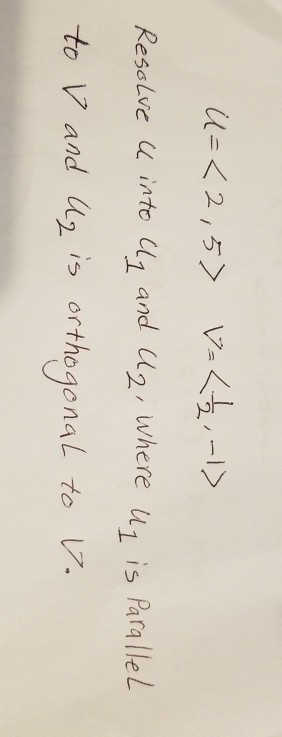 u = < 2 , 5 > V = < 1/2 , -1 >
Resolve u into u1 and u2, where u1 is Parallel
to V and u2 is orthogonal to V.